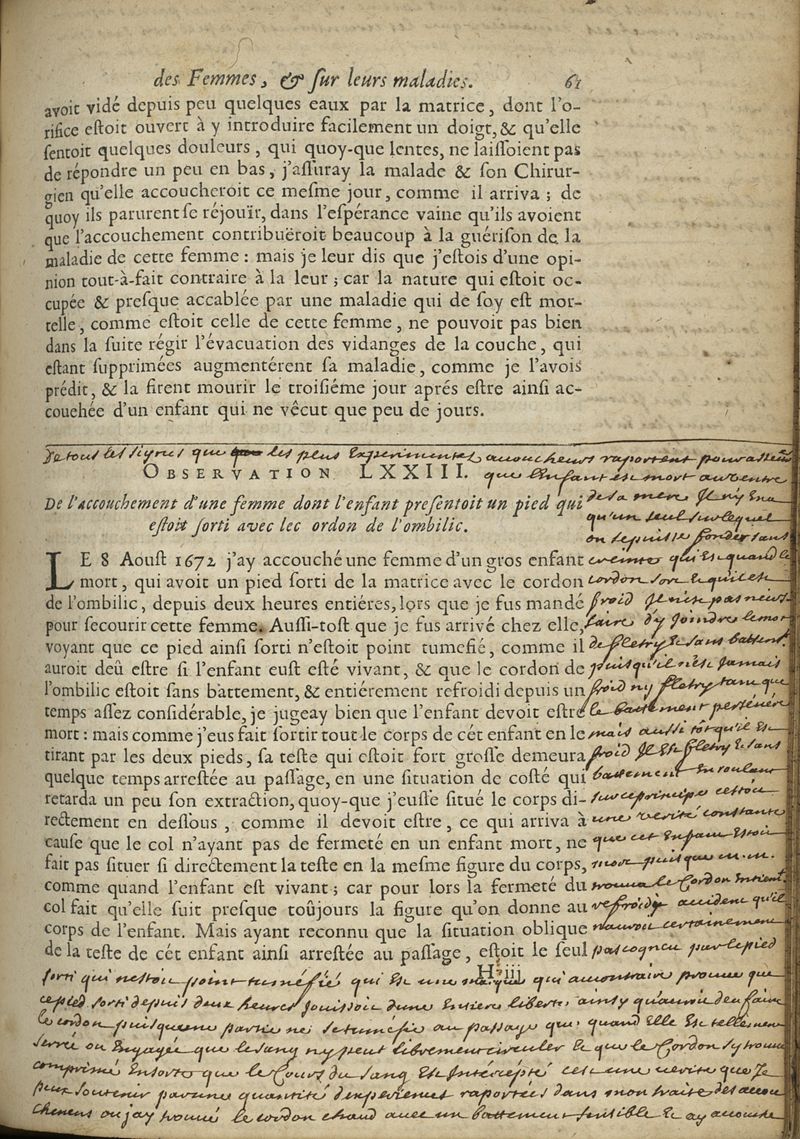 des Femmes, & ſur leurs maladies. 61
avoit vidé depuis peu quelques eaux par la matrice, dont l'o-
rifice eſtoit ouvert à y introduire facilement un doigt, & qu'elle
ſentoit quelques douleurs, qui quoy-que lentes, ne laiſſoient pas
de répondre un peu en bas, j'aſſuray la malade & ſon Chirur-
gien qu'elle accoucheroit ce meſme jour, comme il arriva; de
quoy ils parurent ſe réjouïr, dans l'eſpérance vaine qu'ils avoient
que l'accouchement contribuëroit beaucoup à la guériſon de la
maladie de cette femme: mais je leur dis que j'eſtois d'une opi-
nion tout-à-fait contraire à la leur; car la nature qui eſtoit oc-
cupée & preſque accablée par une maladie qui de ſoy eſt mor-
telle, comme eſtoit celle de cette femme, ne pouvoit pas bien
dans la ſuite régir l'évacuation des vidanges de la couche, qui
eſtant ſupprimées augmentérent ſa maladie, comme je l'avois
prédit, & la firent mourir le troiſiéme jour aprés eſtre ainſi ac-
couehée d'un enfant qui ne vêcut que peu de jours.
De tous les signes que les plus experimentes accoucheurs raportent pour
OBSERVATION LXXIII.
que l'enfant est mort au ventre
De l'accouchement d'une femme dont l'enfant preſentoit un pied qui
eſtoit ſorti avec lec ordon de l'ombilic.
de sa mere Il ny en a
qu'un seul sur lequel
on se puisse fonder sans
LE 8 Aouſt 1672 j'ay accouché une femme d'un gros enfant
mort, qui avoit un pied ſorti de la matrice avec le cordon
de l'ombilic, depuis deux heures entiéres, lors que je fus mandé
pour ſecourir cette femme. Auſſi-toſt que je fus arrivé chez elle,
voyant que ce pied ainſi ſorti n'eſtoit point tumefié, comme il
auroit deû eſtre ſi l'enfant euſt eſté vivant, & que le cordon de
l'ombilic eſtoit ſans battement, & entiérement refroidi depuis un
temps aſſez conſidérable, je jugeay bien que l'enfant devoit eſtre
mort: mais comme j'eus fait ſortir tout le corps de cét enfant en le
tirant par les deux pieds, ſa teſte qui eſtoit fort groſſe demeura
quelque temps arreſtée au paſſage, en une ſituation de coſté qui
retarda un peu ſon extraction, quoy-que j'euſſe ſitué le corps di-
rectement en deſſous, comme il devoit eſtre, ce qui arriva à
cauſe que le col n'ayant pas de fermeté en un enfant mort, ne
fait pas ſituer ſi directement la teſte en la meſme figure du corps,
comme quand l'enfant eſt vivant; car pour lors la fermeté du
col fait qu'elle ſuit preſque toûjours la figure qu'on donne au
corps de l'enfant. Mais ayant reconnu que la ſituation oblique
de la teſte de cét enfant ainſi arreſtée au paſſage, eſtoit le ſeul
H iij
crainte qui est quand le
cordon sort et qu'il est
froid
de fletry et sans battement
puisqu'il n'est jamais
froid ny fletry tant que
le battement
mais aussi lorsqu'il est
froid Il est fletry et sans
battement
sur ce principe cestoit
une verité constante
que cet enfant estoit
mort puisque
trouva le cordon
refroidy accident qu'il
n'auroit certainement
pas cogneu par le pied
sorti qui nestoit point tumefié qui est une marque qui au contraire prouve que
ce pied sorti depuis deux heures jouissoit dune entiere liberte, ainsy qu'auroit deu faire
le cordon puisque une partie ne se tumefie au passage que quand elle est tellement
serré ou engagée que le sang ny peut librement circuler et que le cordon sy trouve
comprimé ensorte que le cours du sang est intercepté cest une verite que Je
peux soutenir par une quantité d'experiences raportées dans mon traité des accou
chemens ou jay trouvé le cordon chaud avec un battement sensible et ay accouché